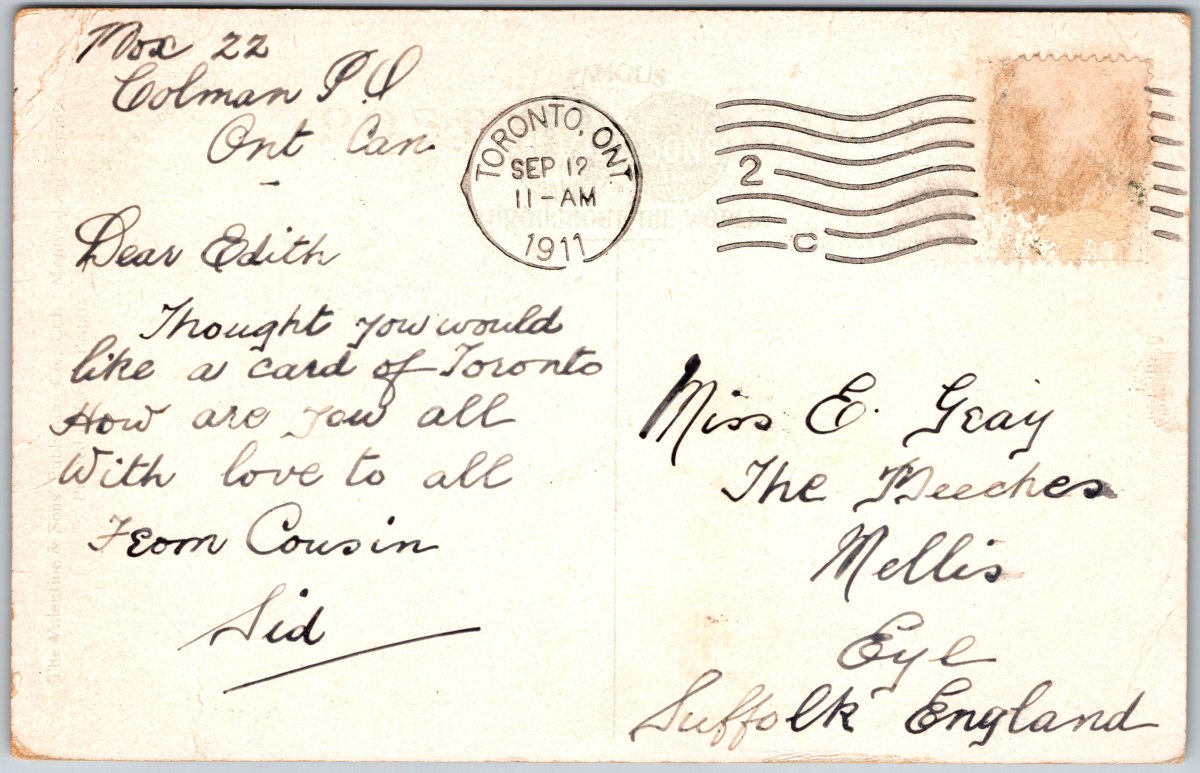 Box 22
Colman P.O
Ont Can.
Dear Edith
Thought you would
like a card of Toronto
How are you all
With love to all
From Cousin
Sid
TORONTO, ONT.
SEP 12
11-AM
1911
2
C
FAMOUS
THROUGHOUT THE WORLD
Miss E. Gray
The Beeches
Mellis
Eye
Suffolk England
The Valentine & Sons